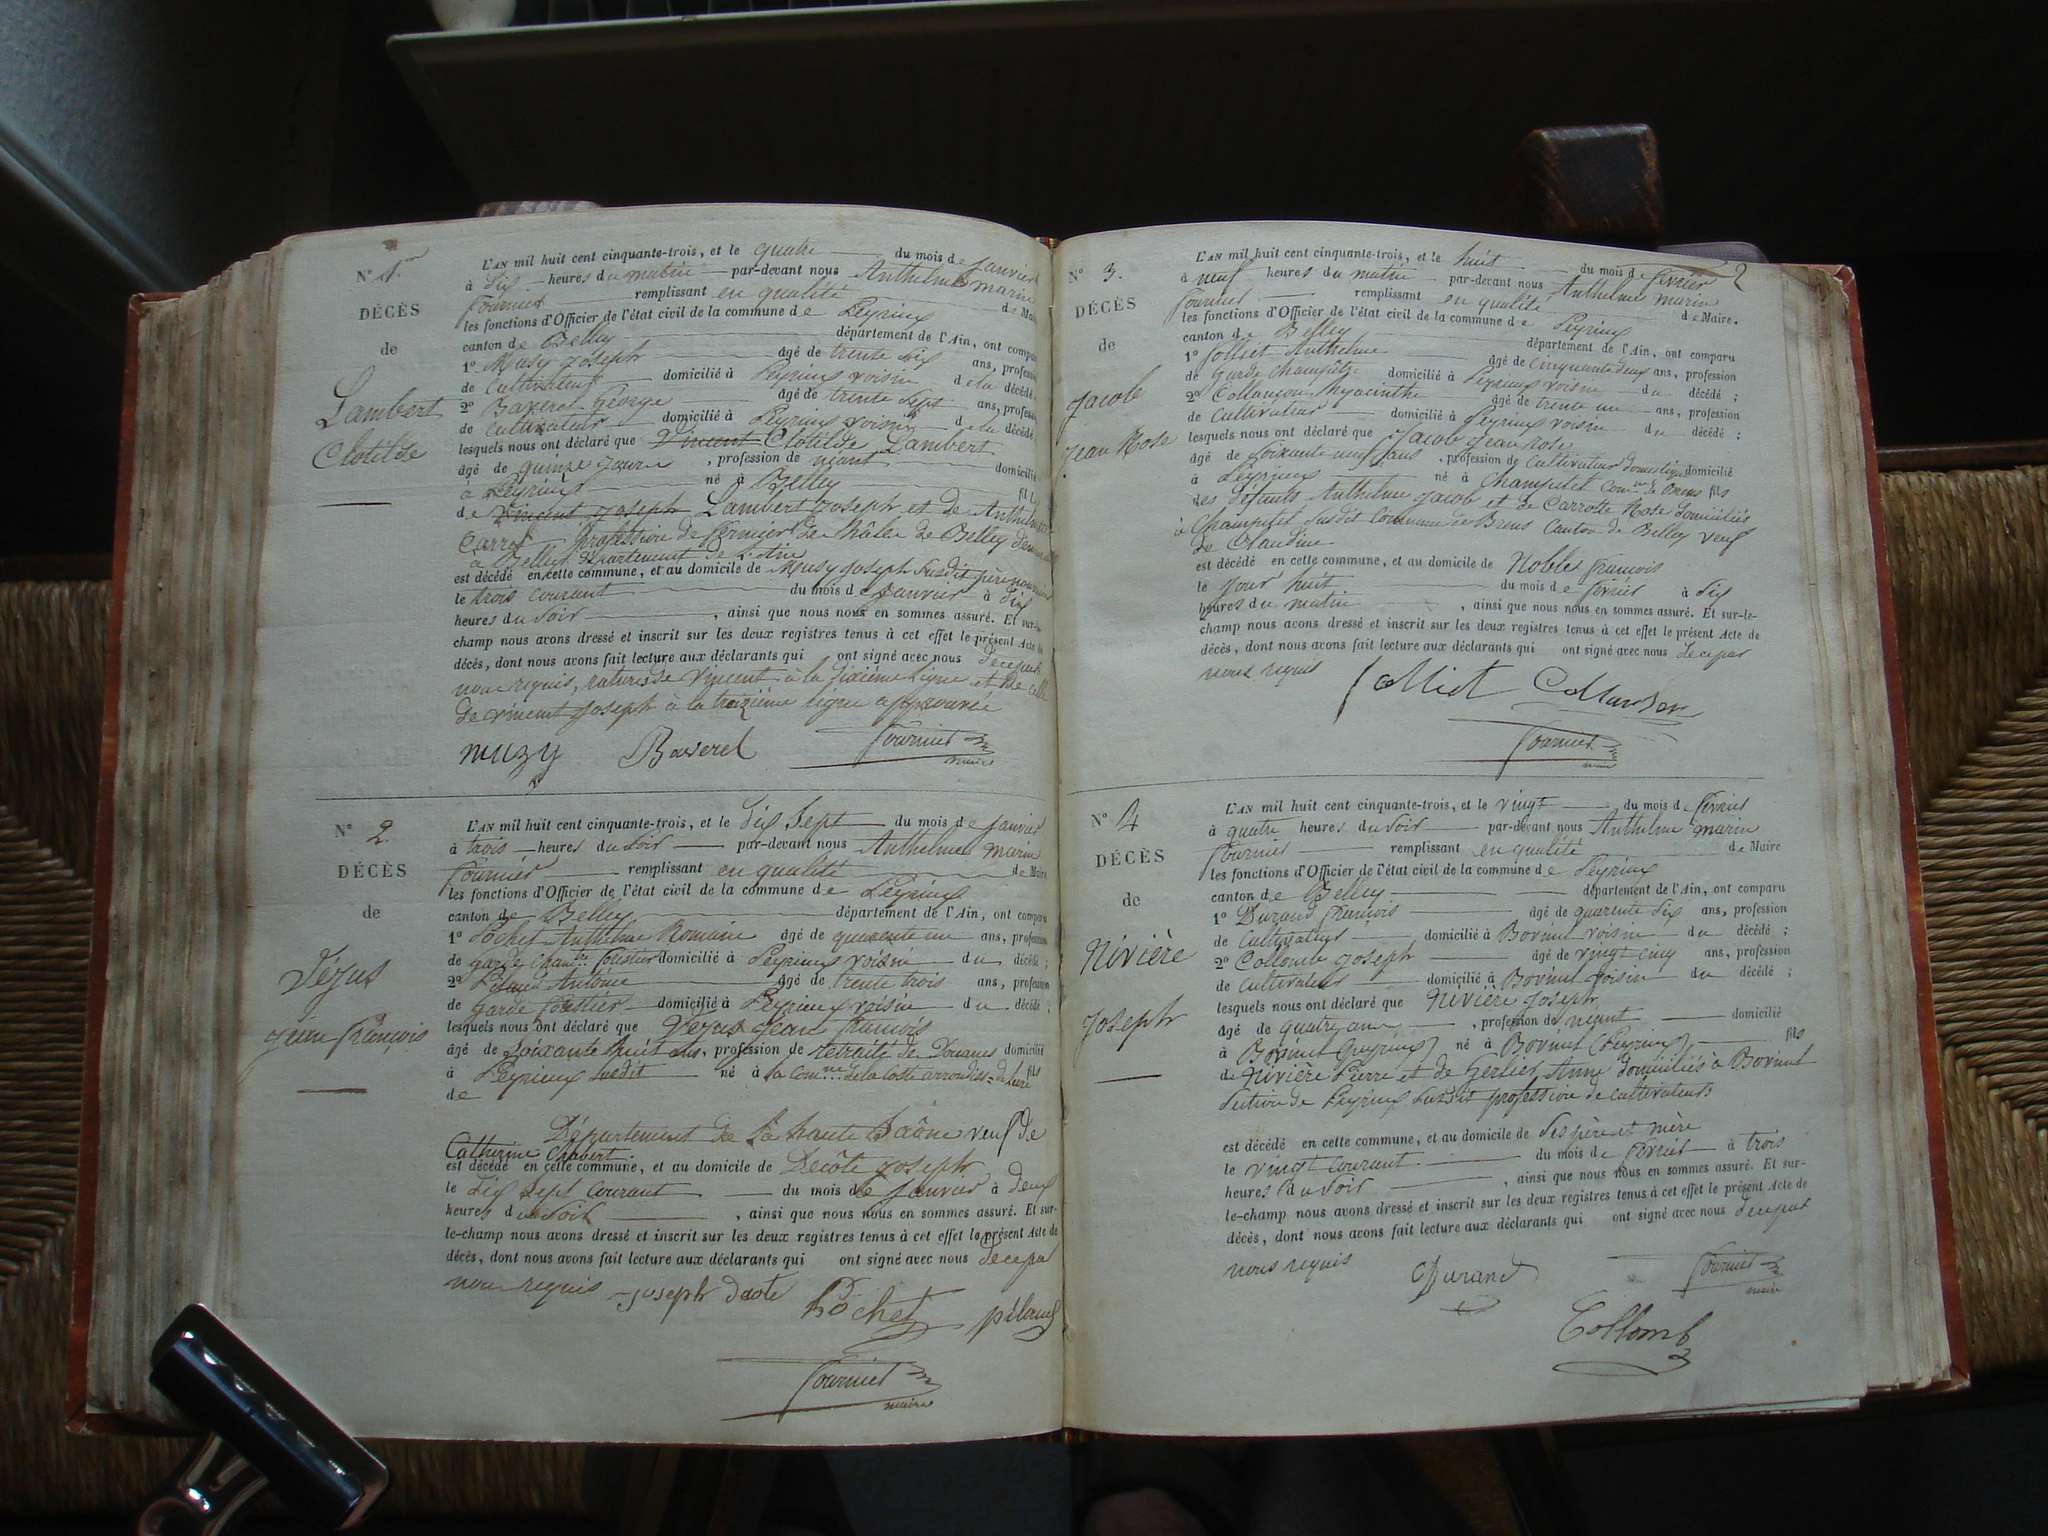 N° 1er
DÉCÈS
de
Lambert
Clotilde
L'AN mil huit cent cinquante-trois, et le quatre du mois de Janvier
à dix heures du matin par-devant nous Anthelme marin
fournier remplissant en qualité de Maire
les fonctions d'Officier de l'état civil de la commune de Peyrieux
canton de Belley département de l'Ain, ont comparu
1° Musy Joseph âgé de trente six ans, profession
de Cultivateur domicilié à Peyrieux voisin de la décédé;
2° Baverel George âgé de trente sept ans, profession
de Cultivateur domicilié à Peyrieux voisin de la décédé
lesquels nous ont déclaré que Vincent Clotilde Lambert
âgé de quinze jours, profession de néant domicilié
à Peyrieux né à Belley fille
de Vincent Joseph Lambert Joseph et de Anthelmette
Carrel profession de fermier de Belley
à Belley département de l'ain
est décédé en cette commune, et au domicile de Musy Joseph susdit père nourricier
le trois courant du mois de Janvier à dix
heures du soir, ainsi que nous nous en sommes assuré. Et sur-le-
champ nous avons dressé et inscrit sur les deux registres tenus à cet effet le présent Acte de
décès, dont nous avons fait lecture aux déclarants qui ont signé avec nous de ce par
nous requis, rature de Vincent à la dixième ligne et de celle
de vincent Joseph à la treizième ligne approuvée
muzy Baverel fournier
maire
N° 2
DÉCÈS
de
Déjus
Jean françois
L'AN mil huit cent cinquante-trois, et le dix sept du mois de Janvier
à trois heures du soir par-devant nous Anthelme marin
fournier remplissant en qualité de Maire
les fonctions d'Officier de l'état civil de la commune de Peyrieux
canton de Belley département de l'Ain, ont comparu
1° Pochet Anthelme Romain âgé de quarente un ans, profession
de garde forestier domicilié à Peyrieux voisin du décédé;
2° Antoine âgé de trente trois ans, profession
de Garde forestier domicilié à Peyrieux voisin du décédé;
lesquels nous ont déclaré que Dejus Jean françois
âgé de soixante huit ans, profession de retraité de Douanes domicilié
à Peyrieux susdit né à la comne de la Cotte arrondiss. de Lure fils
de
Département de la haute Saône veuf de
Catherine Chabert.
est décédé en cette commune, et au domicile de Decôte Joseph
le dix sept courant du mois de Janvier à deux
heures du soir, ainsi que nous nous en sommes assuré. Et sur-
le-champ nous avons dressé et inscrit sur les deux registres tenus à cet effet le présent Acte de
décès, dont nous avons fait lecture aux déclarants qui ont signé avec nous de ce par
nous requis Joseph dcote Pochet
fournier
maire
2
N° 3.
DÉCÈS
de
Jacob
Jean Rose
L'AN mil huit cent cinquante-trois, et le huit du mois de février
à neuf heures du matin par-devant nous Anthelme marin
fournier remplissant en qualité de Maire.
les fonctions d'Officier de l'état civil de la commune de Peyrieux
canton de Belley département de l'Ain, ont comparu
1° Jolliet Anthelme âgé de Cinquante deux ans, profession
de Garde champêtre domicilié à Peyrieux voisin du décédé;
2° Collanson hyacinthe âgé de trente un ans, profession
de Cultivateur domicilié à Peyrieux voisin du décédé;
lesquels nous ont déclaré que Jacob Jean Rose
âgé de soixante neuf ans, profession de Cultivateur domestique domicilié
à Peyrieux né à Champitel comne de Brens fils
des défunts Anthelme Jacob et de Carrotte Rose domiciliés
à Champitel susdit Commune de Brens Canton de Belley veuf
de Claudine
est décédé en cette commune, et au domicile de Noble françois
le Jour huit du mois de février à six
heures du matin, ainsi que nous nous en sommes assuré. Et sur-le-
champ nous avons dressé et inscrit sur les deux registres tenus à cet effet le présent Acte de
décès, dont nous avons fait lecture aux déclarants qui ont signé avec nous de ce par
nous requis
Jolliet Collanson
fournier
maire
N° 4
DÉCÈS
de
Nivière
Joseph
L'AN mil huit cent cinquante-trois, et le vingt du mois de février
à quatre heures du soir par-devant nous Anthelme marin
fournier remplissant en qualité de Maire
les fonctions d'Officier de l'état civil de la commune de Peyrieux
canton de Belley département de l'Ain, ont comparu
1° Durand françois âgé de quarente six ans, profession
de Cultivateur domicilié à Bovinel voisin du décédé;
2° Collomb Joseph âgé de vingt cinq ans, profession
de Cultivateur domicilié à Bovinel voisin du décédé;
lesquels nous ont déclaré que Nivière Joseph
âgé de quatre ans, profession de néant domicilié
à Bovinel (Peyrieux) né à Bovinel (Peyrieux) fils
de Nivière Pierre et de Herbier Anne domiciliés à Bovinel
section de Peyrieux susdit profession de cultivateurs
est décédé en cette commune, et au domicile de ses père et mère
le vingt courant du mois de février à trois
heures du soir, ainsi que nous nous en sommes assuré. Et sur-
le-champ nous avons dressé et inscrit sur les deux registres tenus à cet effet le présent Acte de
décès, dont nous avons fait lecture aux déclarants qui ont signé avec nous de ce par
nous requis Durand fournier
maire
Collomb